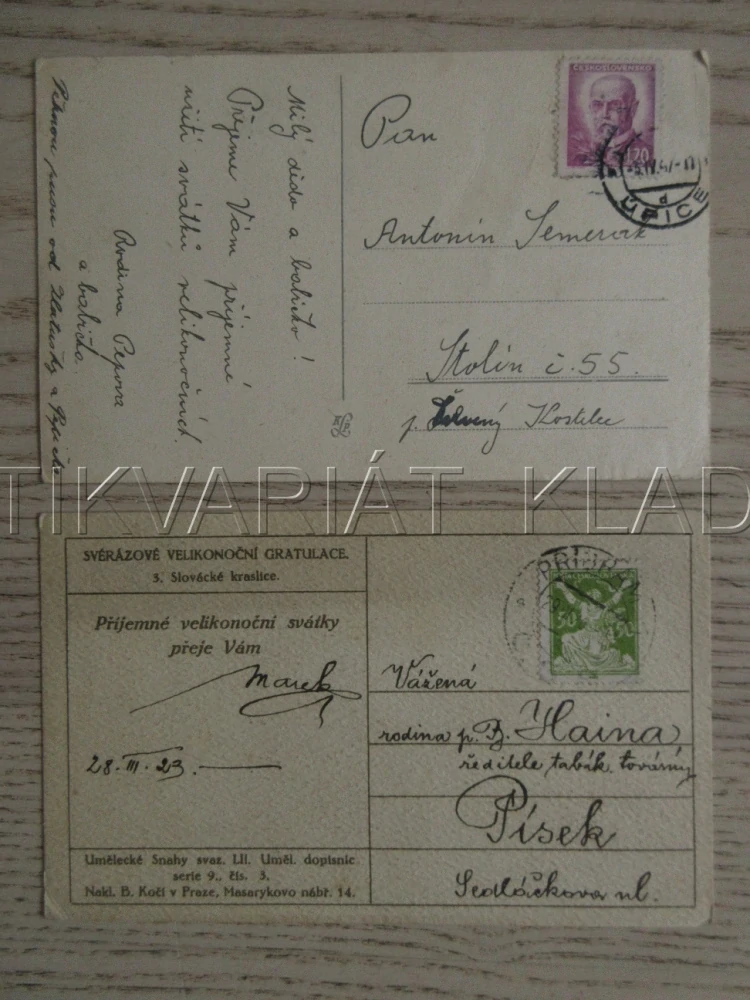 Milý dědo a babičko!
Přejeme Vám příjemné
užití svátků velikonočních.
Rodina Pepova
a babička.
od Zlatušky a
ČESKOSLOVENSKO
1.20
ÚPICE
d
Pan
Antonín Semerák
Stolín č. 55.
p. Červený Kostelec
TIKVARIÁT KLAD
SVÉRÁZOVÉ VELIKONOČNÍ GRATULACE.
3. Slovácké kraslice.
Příjemné velikonoční svátky
přeje Vám
Marek
28. III. 23.
Umělecké Snahy svaz. LII. Uměl. dopisnic
serie 9., čís. 3.
Nakl. B. Kočí v Praze, Masarykovo nábř. 14.
50 50
Vážená
rodina p. B. Haina
ředitele tabák. továrny
Písek
Sedláčkova ul.